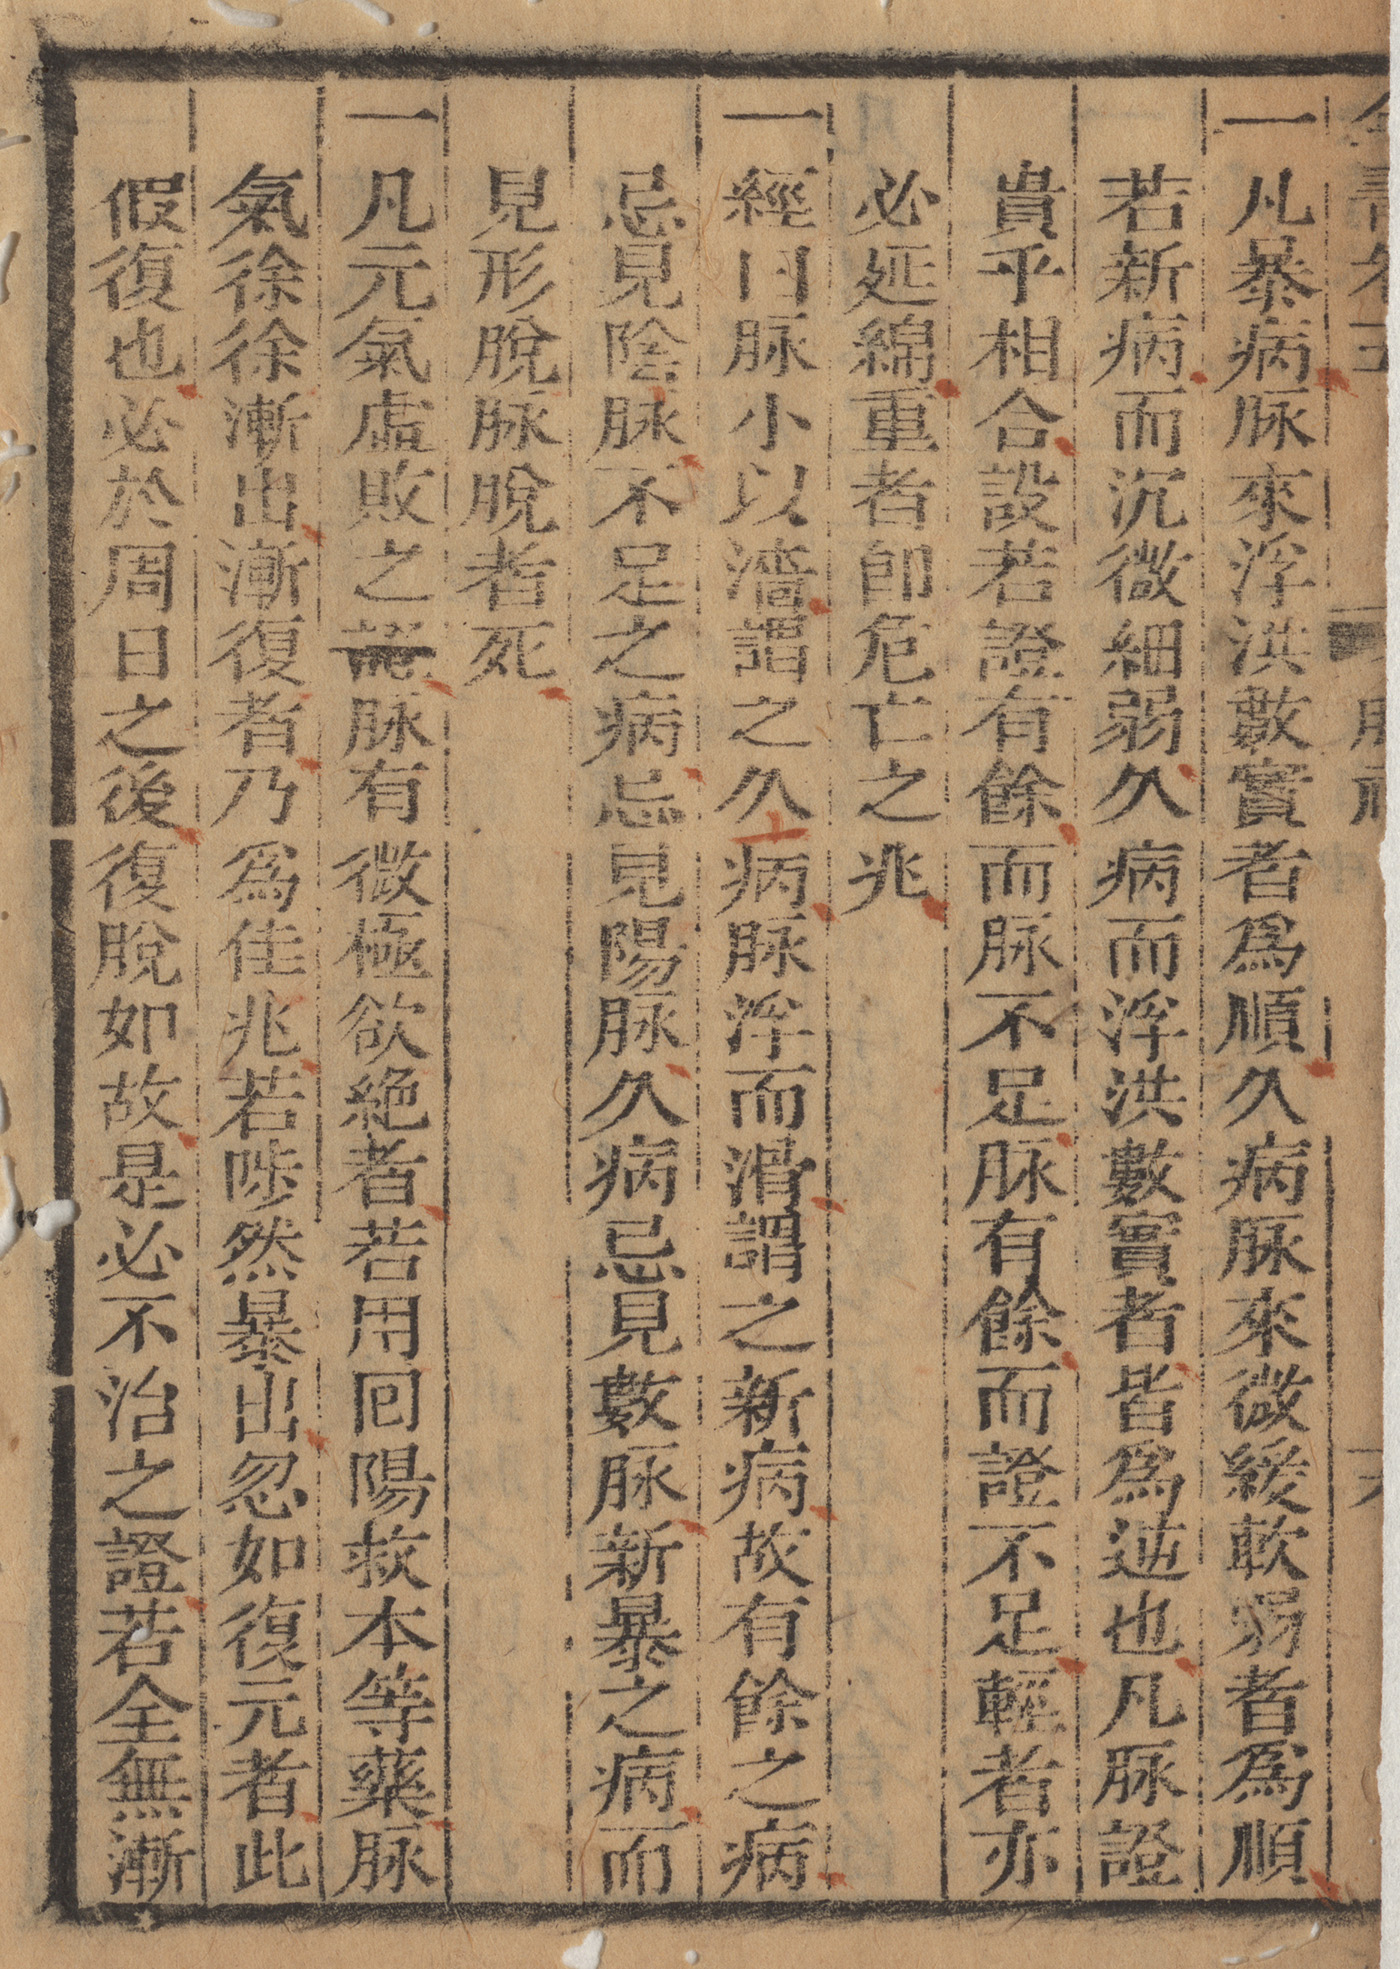 一凡暴病脉來浮洪數實者爲順久病脉來微緩軟弱者爲順
若新病而沉微細弱久病而浮洪數實者皆爲逆也凡脉證
貴乎相合設若證有餘而脉不足脉有餘而證不足輕者亦
必延綿重者卽危亡之兆
一經曰脉小以濇謂之久病脉浮而滑謂之新病故有餘之病
忌見陰脉不足之病忌見陽脉久病忌見數脉新暴之病而
見形脫脉脫者死
一凡元氣虛敗之證脉有微極欲絶者若用回陽救本等藥脉
氣徐徐漸出漸復者乃爲佳兆若陟然暴出忽如復元者此
假復也必於周日之後復脫如故是必不治之證若全無漸